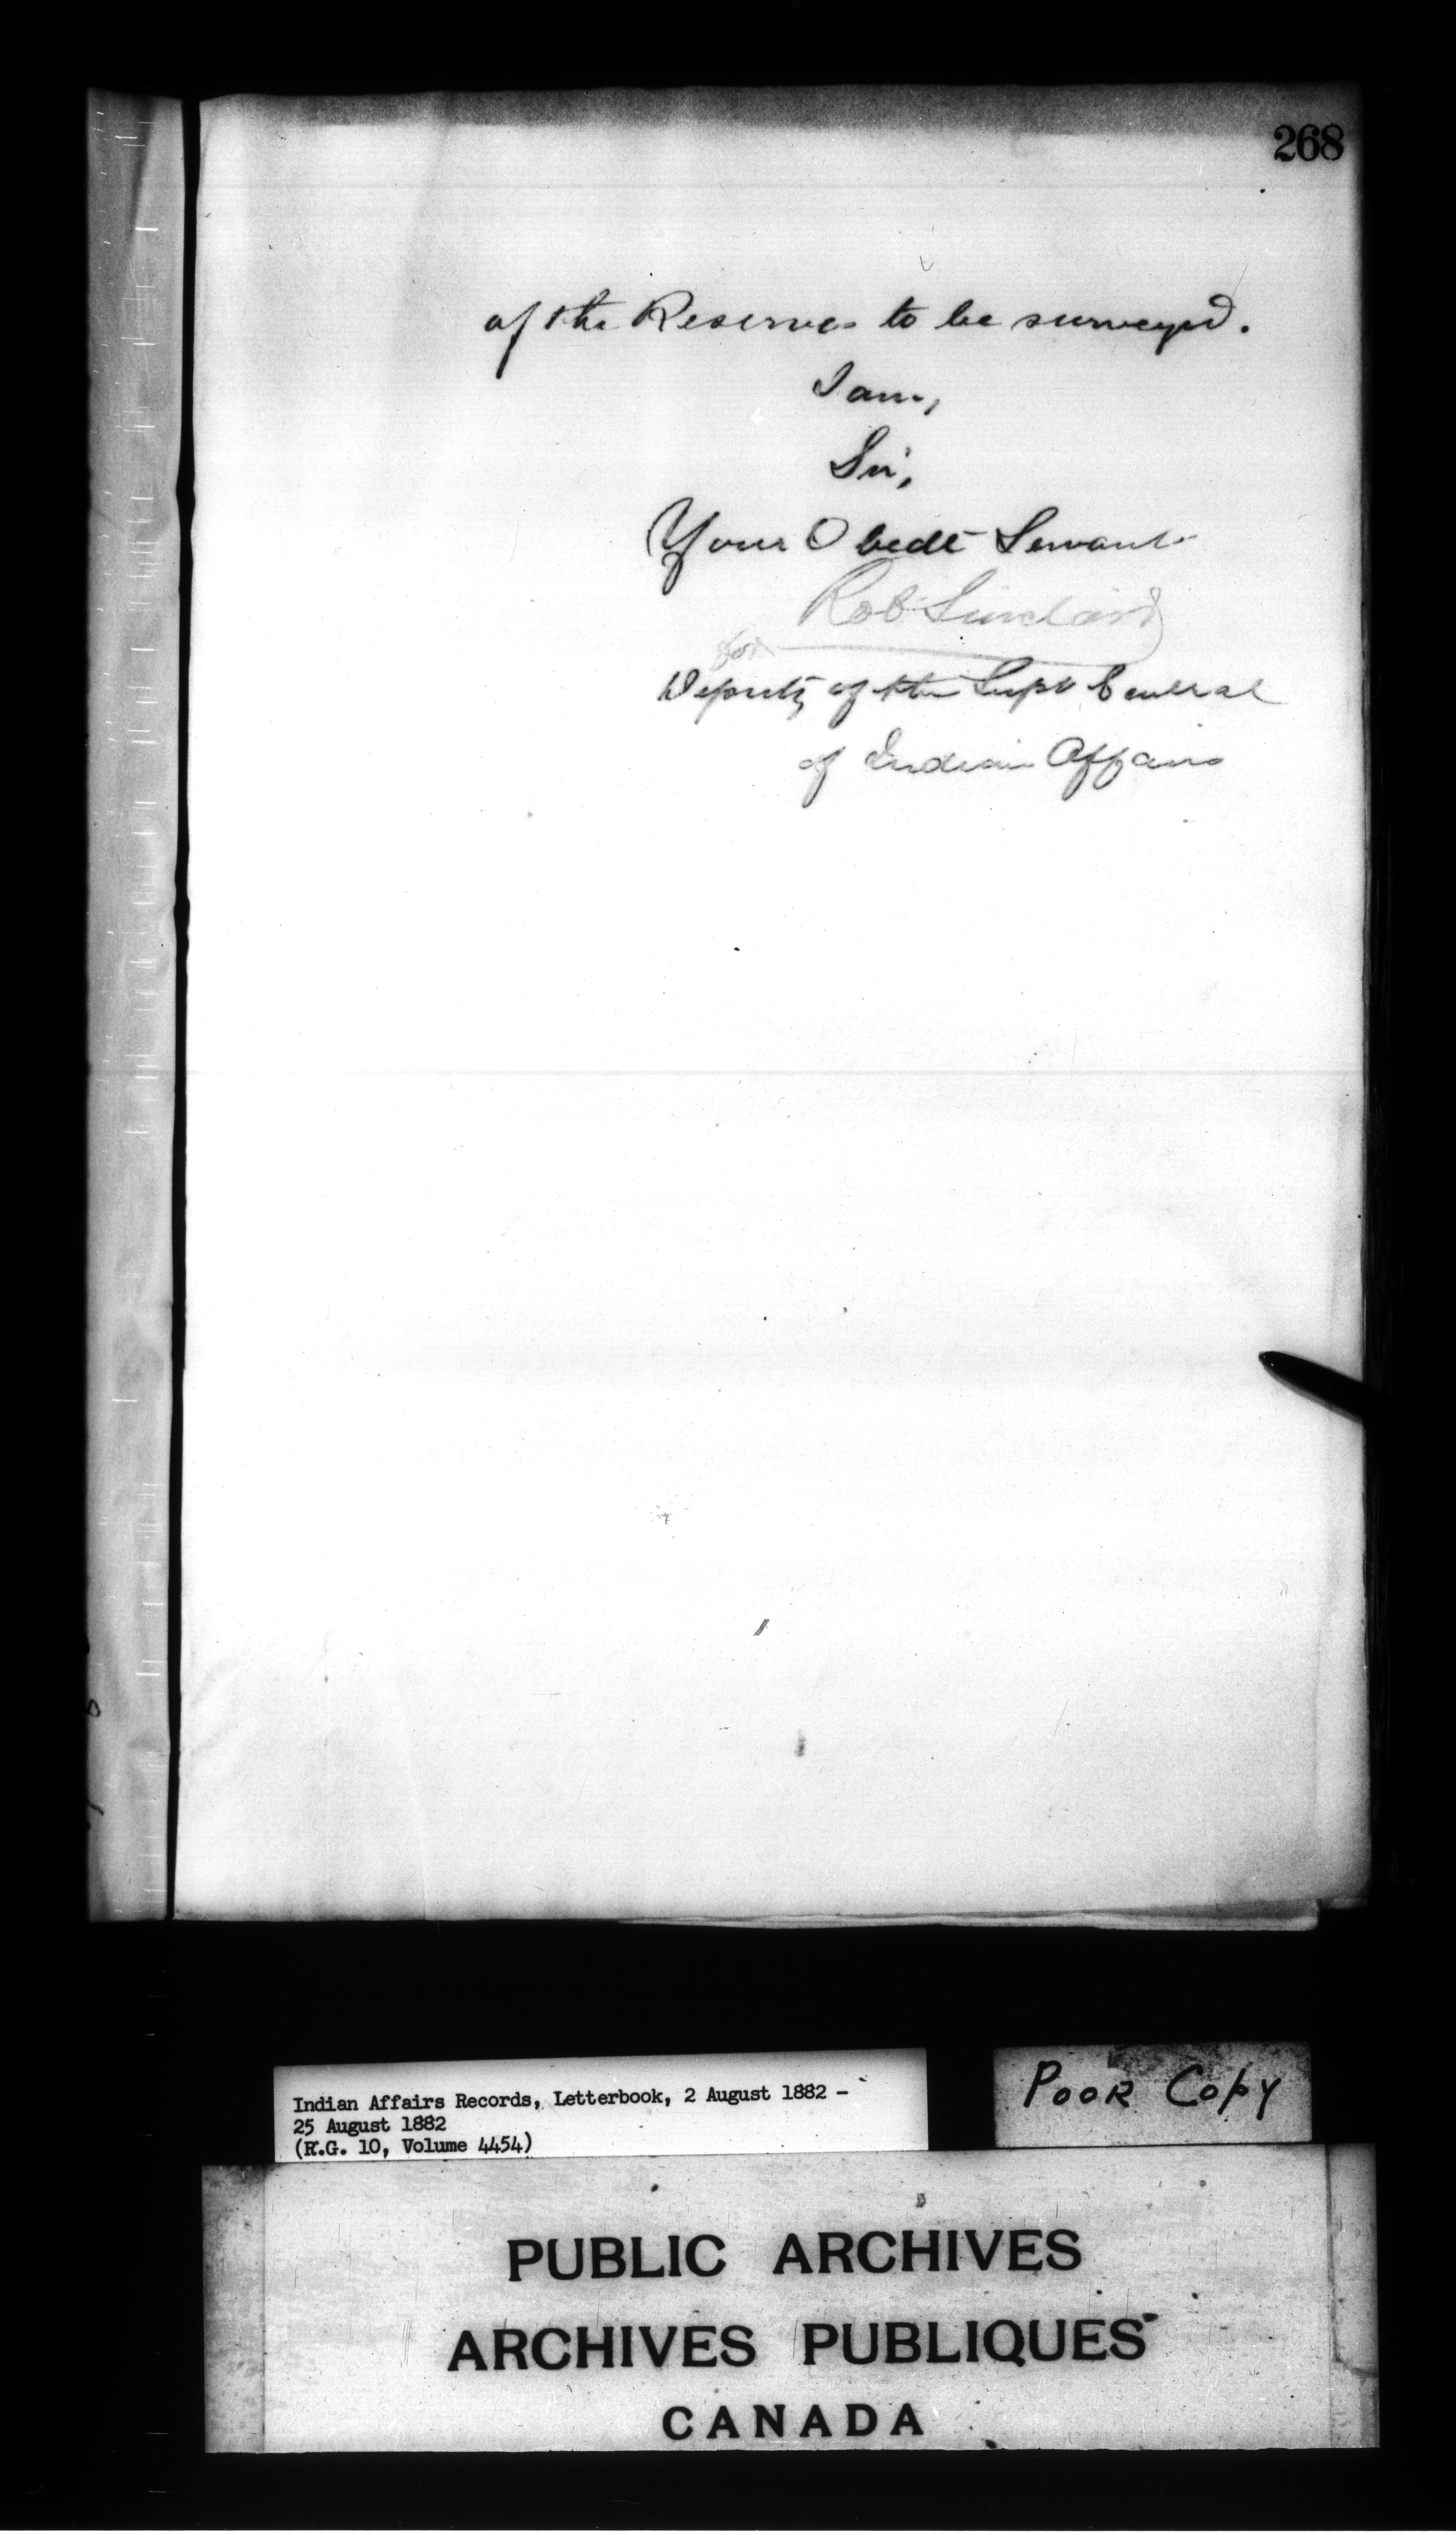 268
of the Reserves to be surveyed.
I am,
Sir,
Your Obedt Servant
Rob Sinclair
for
Deputy of the Supt General
of Indian Affairs
Indian Affairs Records, Letterbook, 2 August 1882 -
25 August 1882
(R.G. 10, Volume 4454)
POOR COPY
PUBLIC ARCHIVES
ARCHIVES PUBLIQUES
CANADA